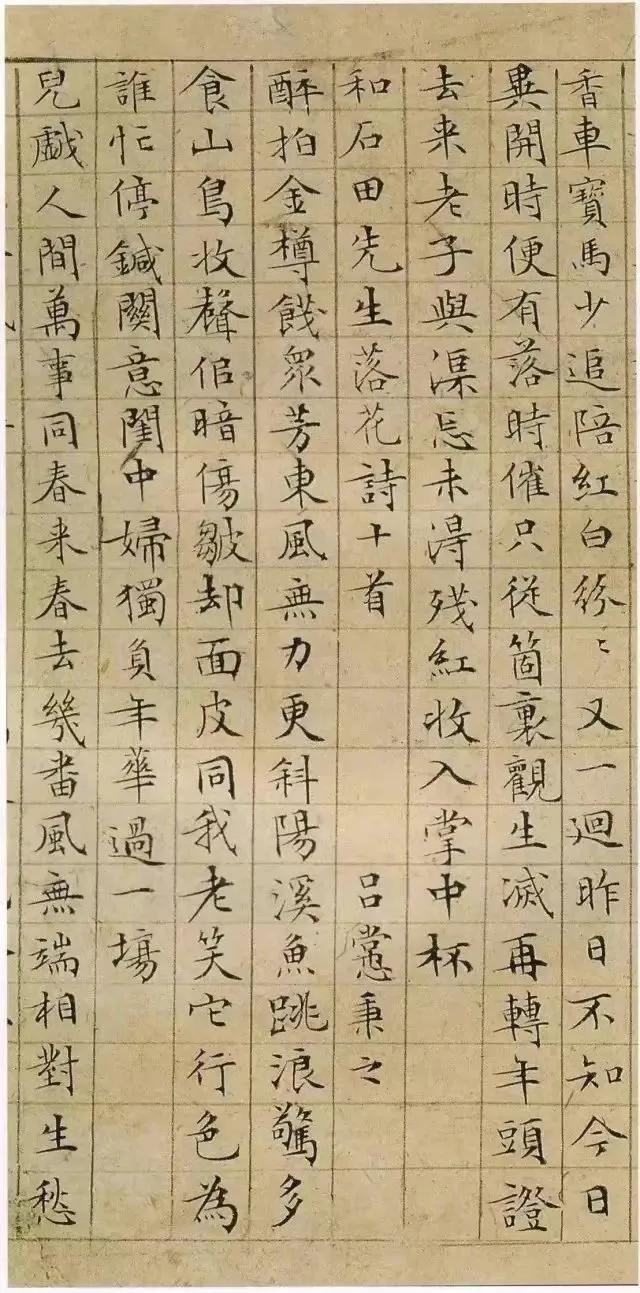 香車寶馬少追陪紅白紛〻又一迴昨日不知今日
異開時便有落時催只從箇裏觀生滅再轉年頭證
去来老子與渠忘未得殘紅收入掌中杯
和石田先生落花詩十首 呂㦂秉之
醉拍金樽餞眾芳東風無力更斜陽溪魚跳浪驚多
食山鳥收聲佀暗傷皺却面皮同我老笑它行色為
誰忙停鍼闗意閨中婦獨負年華過一場
兒戲人間萬事同春来春去幾番風無端相對生愁